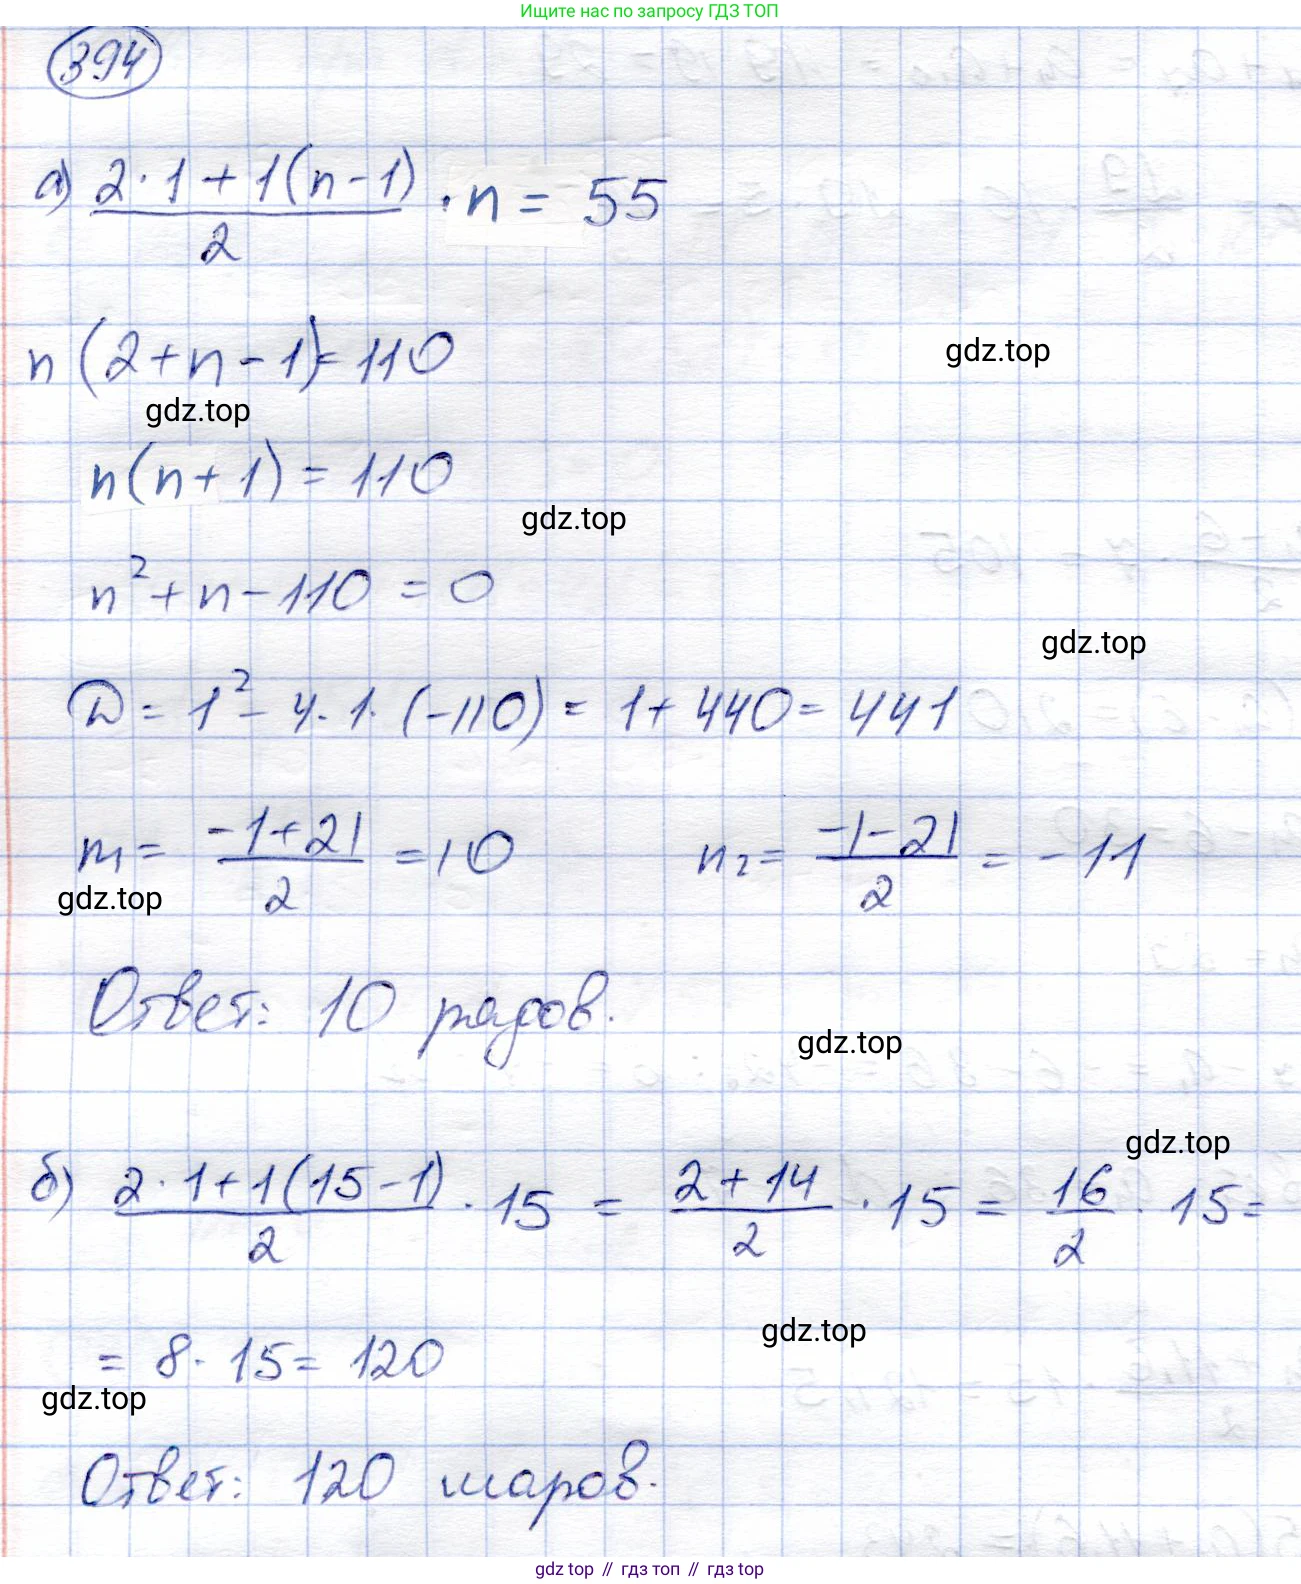 Ищите нас по запросу ГДЗ ТОП
394
а) (2·1+1(n-1))/2 · n = 55
n(2+n-1)=110
gdz.top
gdz.top
n(n+1)=110
gdz.top
n²+n-110=0
gdz.top
D=1²-4·1·(-110)=1+440=441
n₁=(-1+21)/2=10 n₂=(-1-21)/2=-11
gdz.top
Ответ: 10 рядов.
gdz.top
gdz.top
б) (2·1+1(15-1))/2 · 15 = (2+14)/2 · 15 = 16/2 · 15 =
gdz.top
= 8·15=120
gdz.top
Ответ: 120 шаров.
gdz top // гдз топ // гдз top